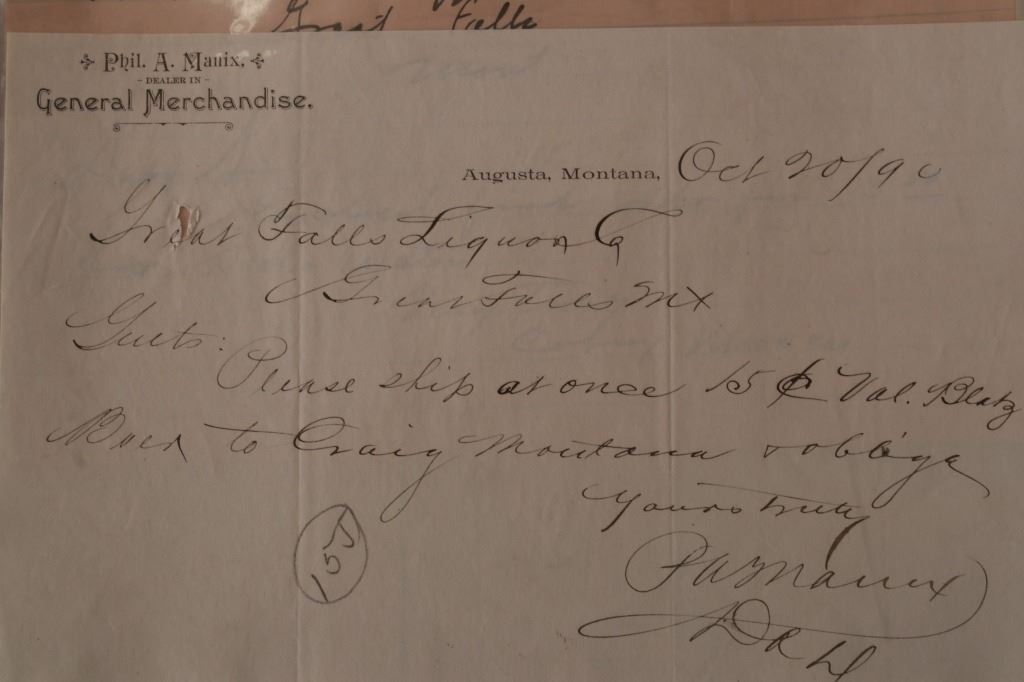 Great Falls
Phil. A. Manix,
- DEALER IN -
General Merchandise.
Augusta, Montana, Oct 20/90
Great Falls Liquor Co
Great Falls Mt
Gents:
Please ship at once 15 Val. Blatz
Beer to Craig Montana & oblige
Yours truly
P A Manix